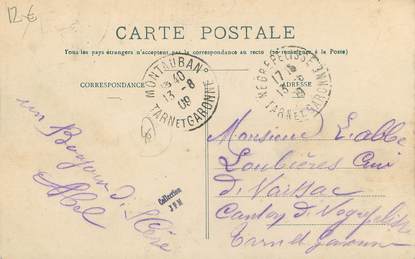 12 €
CARTE POSTALE
Tous les pays étrangers n'acceptent pas la correspondance au recto (se renseigner à la Poste)
CORRESPONDANCE
ADRESSE
MONTAUBAN
13-8
09
TARN ET GARONNE
NEGREPELISSE
TARN ET GARONNE
un
Bonjour d'
Abel
Collection
JPM
Monsieur L'abbé
Loubières Curé
de Vaissac
Canton de Negrepelisse
Tarn et Garonne